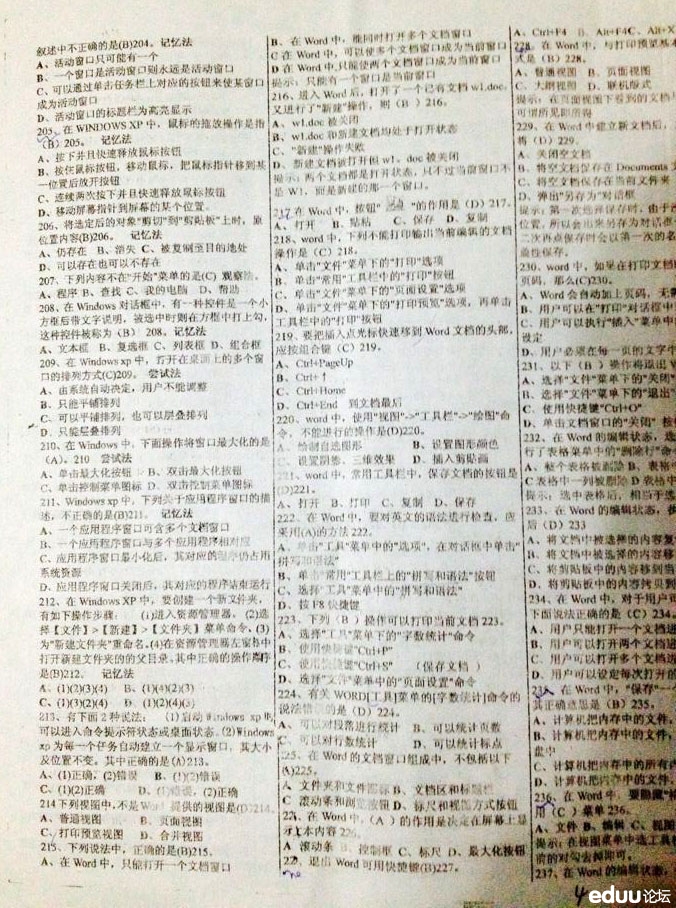 叙述中不正确的是(B)204。记忆法
A、活动窗口只可能有一个
B、一个窗口是活动窗口则永远是活动窗口
C、可以通过单击任务栏上对应的按钮来使某窗口
成为活动窗口
D、活动窗口的标题栏为高亮显示
205、在WINDOWS XP中，鼠标的拖放操作是指
(B)205。 记忆法
A、按下并且快速释放鼠标按钮
B、按住鼠标按钮，移动鼠标，把鼠标指针移到某
一位置后放开按钮
C、连续两次按下并且快速释放鼠标按钮
D、移动屏幕指针到屏幕的某个位置
206、将选定后的对象"剪切"到"剪贴板"上时，原
位置内容(B)206。 记忆法
A、仍存在 B、消失 C、被复制至目的地处
D、可以存在也可以不存在
207、下列内容不在"开始"菜单的是(C)
A、程序 B、查找 C、我的电脑 D、帮助
208、在Windows对话框中，有一种控件是一个小
方框后带文字说明，被选中时则在方框中打上勾，
这种控件被称为（B）208。记忆法
A、文本框 B、复选框 C、列表框 D、组合框
209、在Windows xp中，打开在桌面上的多个窗
口的排列方式(C)209。 尝试法
A、由系统自动决定，用户不能调整
B、只能平铺排列
C、可以平铺排列，也可以层叠排列
D、只能层叠排列
210、在Windows中，下面操作将窗口最大化的是
(A)。210 尝试法
A、单击最大化按钮 B、双击最大化按钮
C、单击控制菜单图标 D、双击控制菜单图标
211、Windows xp中，下列关于应用程序窗口的描
述，不正确的是(B)211。 记忆法
A、一个应用程序窗口可含多个文档窗口
B、一个应用程序窗口与多个应用程序相对应
C、应用程序窗口最小化后，其对应的程序仍占用
系统资源
D、应用程序窗口关闭后，其对应的程序结束运行
212、在Windows XP中，要创建一个新文件夹，
有如下操作步骤： (1)进入资源管理器。(2)选
择【文件】>【新建】>【文件夹】菜单命令。(3)
为"新建文件夹"重命名。(4)在资源管理器左窗格中
打开新建文件夹的的父目录。其中正确的操作顺序
是(B)212。 记忆法
A、(1)(2)(3)(4) B、(1)(4)(2)(3)
C、(4)(1)(2)(3) D、(1)(2)(4)(3)
213、有下面2种说法： (1)启动Windows xp中，
可以进入命令提示符状态或桌面状态。(2)Windows
xp为每一个任务自动建立一个显示窗口，其大小
及位置不变。其中正确的是(A)213。
A、(1)正确，(2)错误 B、(1)(2)错误
C、(1)(2)正确 D、(1)错误，(2)正确
214下列视图中，不是Word提供的视图是(D)214。
A、普通视图 B、页面视图
C、打印预览视图 D、合并视图
215、下列说法中，正确的是(B)215。
A、在Word中，只能打开一个文档窗口
B、在Word中，能同时打开多个文档窗口
C 在Word中，可以使多个文档窗口成为当前窗口
D 在Word中,只能使两个文档窗口成为当前窗口
提示：只能有一个窗口是当前窗口
216、进入Word后，打开了一个已有文档w1.doc，
又进行了"新建"操作，则（B）216。
A、w1.doc被关闭
B、w1.doc和新建文档均处于打开状态
C、"新建"操作失败
D、新建文档被打开但w1。doc被关闭
提示：两个文档都是打开状态，只不过当前窗口不
是W1，而是新建的那一个窗口。
217在Word中，按钮" "的作用是（D）217。
A、打开 B、粘贴 C、保存 D、复制
218、word中，下列不能打印输出当前编辑的文档
操作是（C）218。
A、单击"文件"菜单下的"打印"选项
B、单击"常用"工具栏中的"打印"按钮
C、单击"文件"菜单下的"页面设置"选项
D、单击"文件"菜单下的"打印预览"选项，再单击
工具栏中的"打印"按钮
219、要把插入点光标快速移到Word文档的头部，
应按组合键（C）219。
A、Ctrl+PageUp
B、Ctrl+↑
C、Ctrl+Home
D、Ctrl+End 到文档最后
220、word中，使用"视图"->"工具栏"->"绘图"命
令，不能进行的操作是(D)220。
A、绘制自选图形 B、设置图形颜色
C、设置阴影、三维效果 D、插入剪贴画
221、word中，常用工具栏中，保存文档的按钮是
(D)221。
A、打开 B、打印 C、复制 D、保存
222、在Word中，要对英文的语法进行检查，应
采用(A)的方法222。
A、单击"工具"菜单中的"选项"，在对话框中单击"
拼写和语法"
B、单击"常用"工具栏上的"拼写和语法"按钮
C、选择"工具"菜单中的"拼写和语法"
D、按F8快捷键
223、下列（B）操作可以打印当前文档223。
A、选择"工具"菜单下的"字数统计"命令
B、使用快捷键"Ctrl+P"
C、使用快捷键"Ctrl+S" （保存文档）
D、选择"文件"菜单中的"页面设置"命令
224、有关WORD[工具]菜单的[字数统计]命令的
说法错误的是（D）224。
A、可以对段落进行统计 B、可以统计页数
C、可以对行数统计 D、可以统计标点
225、在Word的文档窗口组成中，不包括以下
(A)225。
A 文件夹和文件图标 B、文档区和标题栏
C 滚动条和浏览按钮 D、标尺和视图方式按钮
226、在Word中，（A）的作用是决定在屏幕上显
示文本内容226。
A 滚动条 B、控制框 C、标尺 D、最大化按钮
227、退出Word可用快捷键(B)227。
A、Ctrl+F4 B、Alt+F4C、Alt+X
228、在Word中，与打印预览基本
式是（B）228。
A、普通视图 B、页面视图
C、大纲视图 D、联机版式
提示：在页面视图下看到的文档
可谓所见即所得
229、在Word中建立新文档后，
将（D）229。
A、关闭空文档
B、将空文档保存在Documents
C、将空文档保存在当前文件夹
D、弹出"另存为"对话框
提示：第一次选择保存时，由于
位置，所以会出来另存为对话框
二次再点保存时会以第一次的名
盖性保存。
230、word中，如果在打印文档时
页码，那么(C)230。
A、Word会自动加上页码，无需
B、用户可以在"打印"对话框中
C、用户可以执行"插入"菜单中
设定
D、用户必须在每一页的文字中
231、以下（B）操作将退出W
A、选择"文件"菜单下的"关闭"
B、选择"文件"菜单下的"退出"
C、使用快捷键"Ctrl+O"
D、单击文档窗口的"关闭"按
232、在Word的编辑状态，选
行了表格菜单中的"删除行"命
A、整个表格被删除 B、表格中
C表格中一列被删除 D表格中
提示：选中表格后，相当于选
233、在Word的编辑状态，执
后（D）233
A、将文档中被选择的内容复
B、将文档中被选择的内容移
C、将剪贴板中的内容移到当
D、将剪贴板中的内容拷贝到
234、在Word中，对于用户可
下面说法正确的是（C）234。
A、用户只能打开一个文档进
B、用户可以打开两个文档进
C、用户可以打开多个文档进
D、用户可以设定每次打开的
235、在Word中，"保存"一个
其正确意思是（B）235。
A、计算机把内存中的文件，
B、计算机把内存中的文件，
盘中
C、计算机把内存中的所有内
D、计算机把内存中的文件，
236、在Word中，要隐藏"格
用（C）菜单236。
A、文件 B、编辑 C、视图
提示：在视图菜单中选工具
前的对勾去掉即可。
237、在Word的编辑状态，
4
eduu论坛